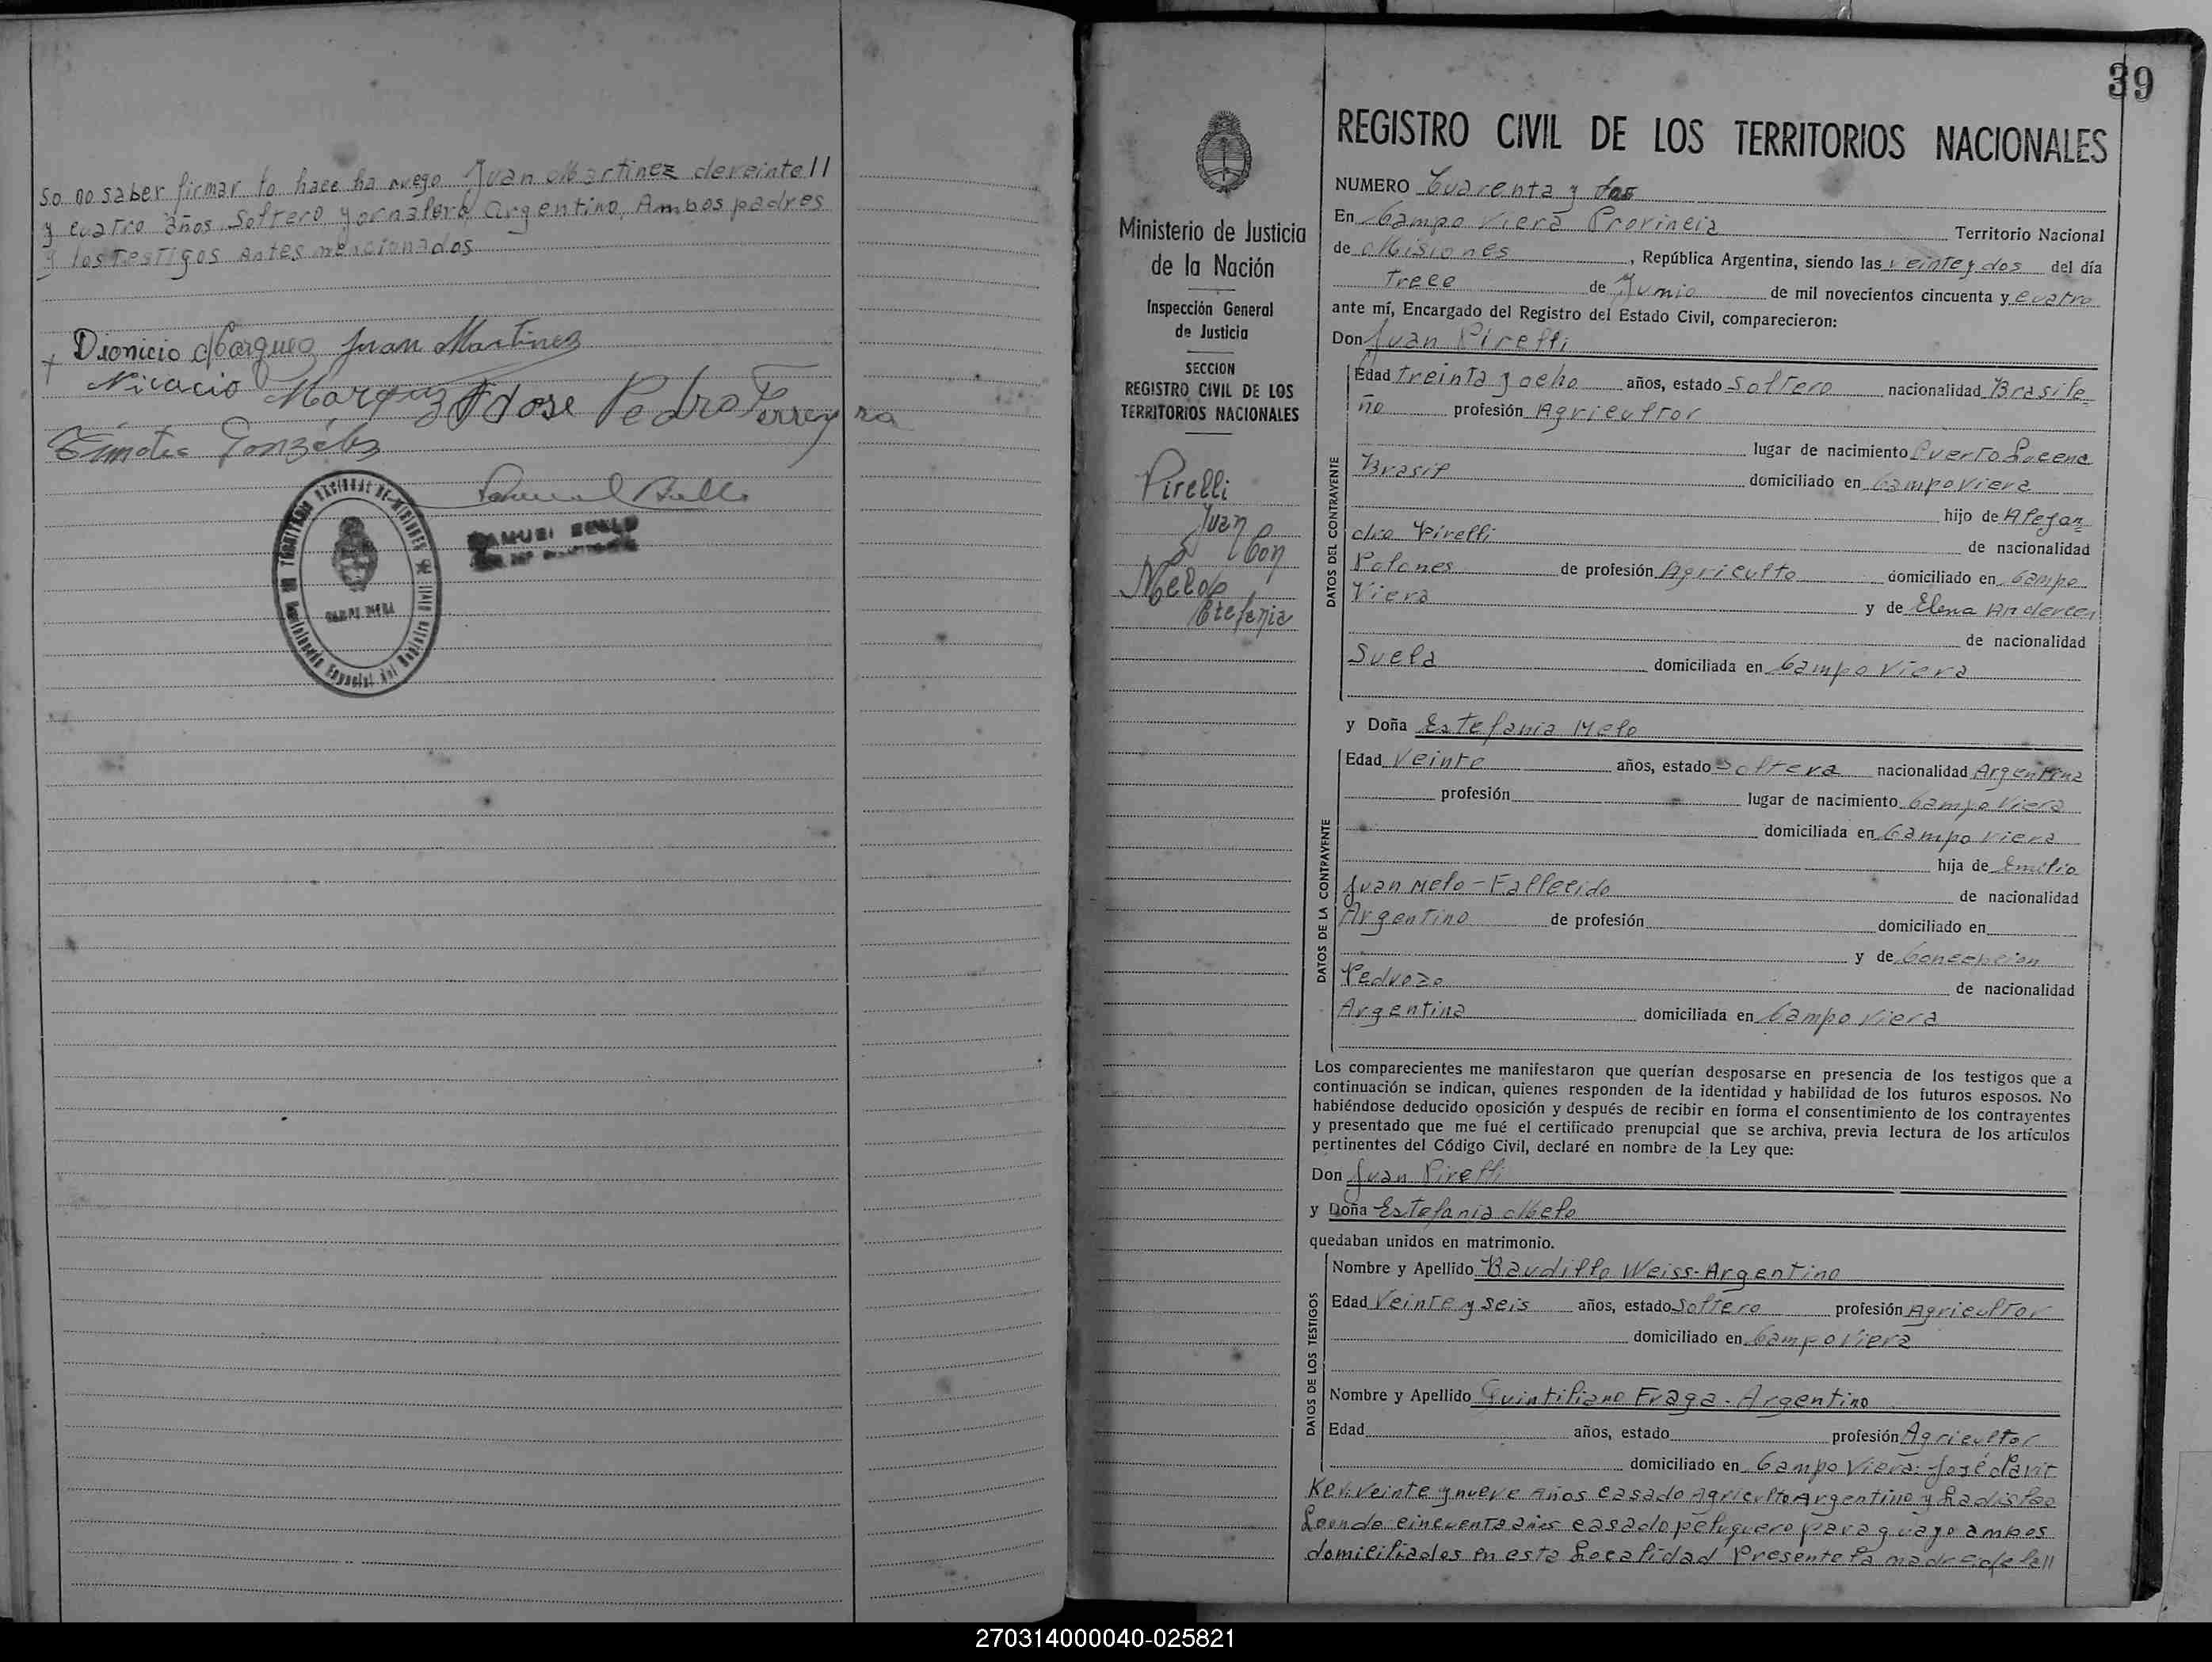 so no saber firmar lo hace ha ruego Juan Martinez deveinte//
y cuatro años Soltero Jornalero Argentino, Ambos padres
y los Testigos Antes mencionados
Dionicio Marquez Juan Martinez
Nicacio Marquez Jose Pedro Ferreyra
Timotea González
CAMPO VIERA
39
REGISTRO CIVIL DE LOS TERRITORIOS NACIONALES
NUMERO Cuarenta y dos
En Campo Viera Provincia Territorio Nacional
de Misiones, República Argentina, siendo las veinte y dos del día
Trece de Junio de mil novecientos cincuenta y cuatro
ante mí, Encargado del Registro del Estado Civil, comparecieron:
Don Juan Pirelli
Ministerio de Justicia
de la Nación
Inspección General
de Justicia
SECCION
REGISTRO CIVIL DE LOS
TERRITORIOS NACIONALES
Pirelli
Juan
Con
Melo
Estefania
DATOS DEL CONTRAYENTE
Edad treinta y ocho años, estado Soltero nacionalidad Brasile
ño profesión Agricultor
lugar de nacimiento Puerto Lucena
Brasil domiciliado en Campo Viera
hijo de Alejan
dro Pirelli de nacionalidad
Polones de profesión Agriculto domiciliado en Campo
Viera y de Elena Andercen
de nacionalidad
Suela domiciliada en Campo Viera
y Doña Estefania Melo
DATOS DE LA CONTRAYENTE
Edad Veinte años, estado Soltera nacionalidad Argentina
profesión lugar de nacimiento Campo Viera
domiciliada en Campo Viera
hija de Emilio
Juan Melo - Fallecido de nacionalidad
Argentino de profesión domiciliado en
y de Concepcion
Pedrozo de nacionalidad
Argentina domiciliada en Campo Viera
Los comparecientes me manifestaron que querían desposarse en presencia de los testigos que a
continuación se indican, quienes responden de la identidad y habilidad de los futuros esposos. No
habiéndose deducido oposición y después de recibir en forma el consentimiento de los contrayentes
y presentado que me fué el certificado prenupcial que se archiva, previa lectura de los artículos
pertinentes del Código Civil, declaré en nombre de la Ley que:
Don Juan Pirelli
y Doña Estefania Melo
quedaban unidos en matrimonio.
DATOS DE LOS TESTIGOS
Nombre y Apellido Baudillo Weiss - Argentino
Edad Veinte y seis años, estado Soltero profesión Agricultor
domiciliado en Campo Viera
Nombre y Apellido Quintiliano Fraga - Argentino
Edad años, estado profesión Agricultor
domiciliado en Campo Viera: José
veinte y nueve Años casado Agriculto Argentino y Ladislao
cincuenta años casado peluquero paraguayo ambos
domiciliados en esta Localidad Presente la madre de la//
270314000040-025821